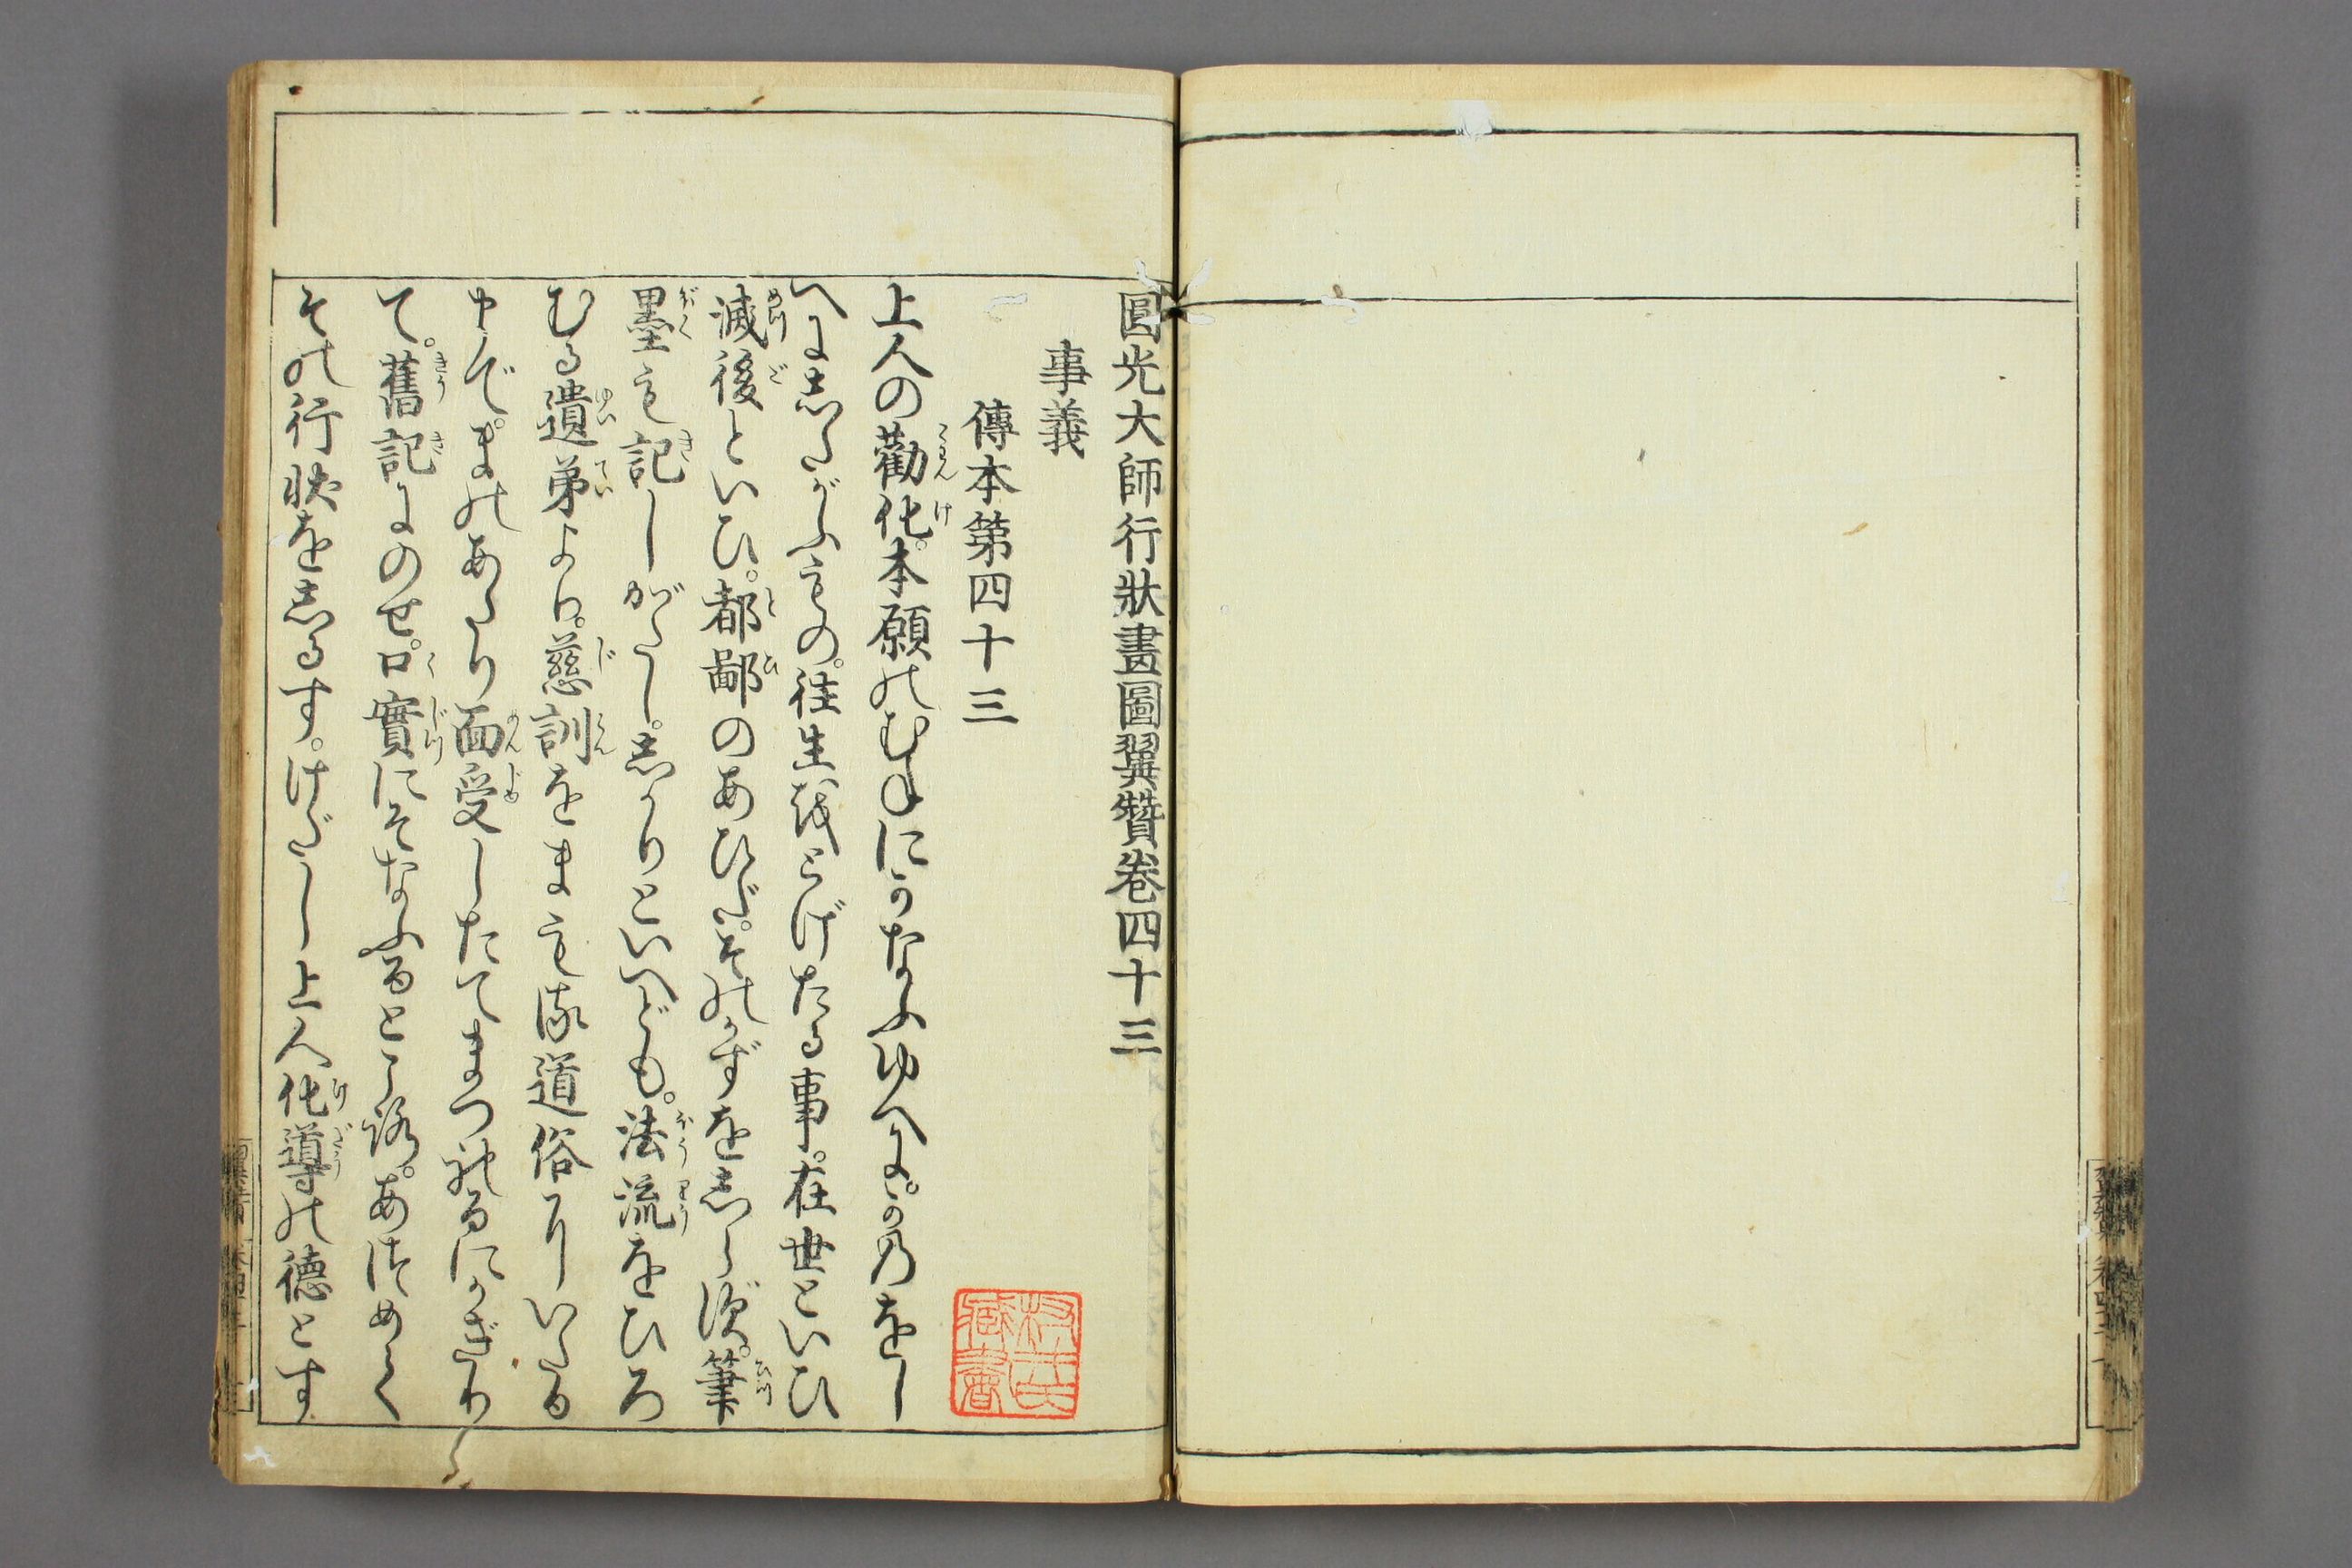 圓光大師行狀畫圖翼贊卷四十三
事義
傳本第四十三
上人の勸化。本願のむねにかなふゆへに。かのをし
へにしたがふもの。往生をとげたる事。在世といひ
滅後といひ。都鄙のあひだ。そのかずをしらず。筆
墨も記しがたし。しかりといへども。法流をひろ
むる遺弟より。慈訓をまもる道俗にいたる
まで。まのあたり面受したてまつれるにかぎり
て。舊記にのせ。口實にそなふるところ。あつめて
その行狀をしるす。けだし上人化導の德とす